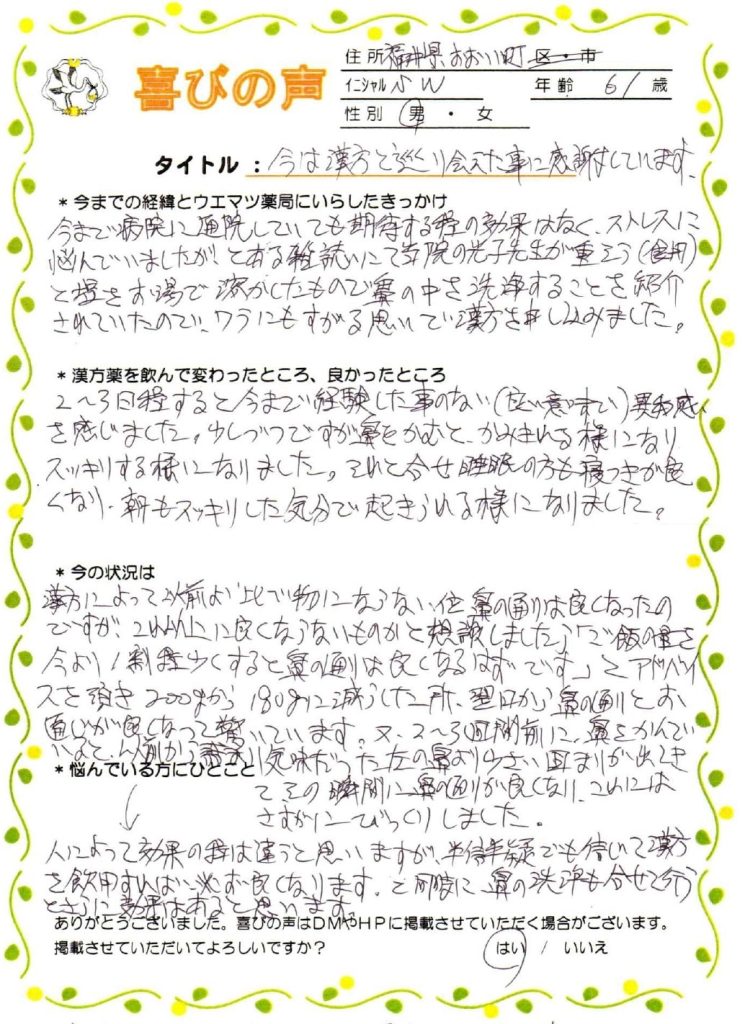 喜びの声
住所 福井県おおい町 区・市
イニシャル N W 年齢 61 歳
性別 男 ・ 女
タイトル : 今は漢方と巡り会えた事に感謝しています。
*今までの経緯とウエマツ薬局にいらしたきっかけ
今まで病院に通院していても期待する程の効果はなく、ストレスに
悩んでいましたが、とある雑誌にて 院の光子先生が重そう(食用)
と塩をお湯で溶かしたもので鼻の中を洗浄することを紹介
されていたので、ワラにもすがる思いで漢方を申し込みました。
*漢方薬を飲んで変わったところ、良かったところ
2〜3日程すると今まで経験した事のない(良い意味で)異和感
を感じました。少しづつですが鼻をかむと、かみきれる様になり
スッキリする様になりました。それと合せ睡眠の方も寝つきが良
くなり、朝もスッキリした気分で起きられる様になりました。
*今の状況は
漢方によって以前より比べ物にならない位鼻の通りは良くなったの
ですが、これ以上に良くならないものかと相談しましたら「ご飯の量を
今より1割程少くすると鼻の通りは良くなるはずです」とアドバイ
スを頂き200gから180gに減らした所、翌日から鼻の通りとお
通じが良くなって驚いています。又、2〜3週間前に、鼻をかんで
いると、以前から 気味だった左の鼻より小さい血まりが出てき
てその瞬間に鼻の通りが良くなり、これには
さすがにびっくりしました。
*悩んでいる方にひとこと
人によって効果の は違うと思いますが、半信半疑でも信じて漢方
を飲用すれば必ず良くなります。と同時に鼻の洗浄も合せて行う
とさらに効果はあると思います。
ありがとうございました。喜びの声はDMやHPに掲載させていただく場合がございます。
掲載させていただいてよろしいですか? はい / いいえ